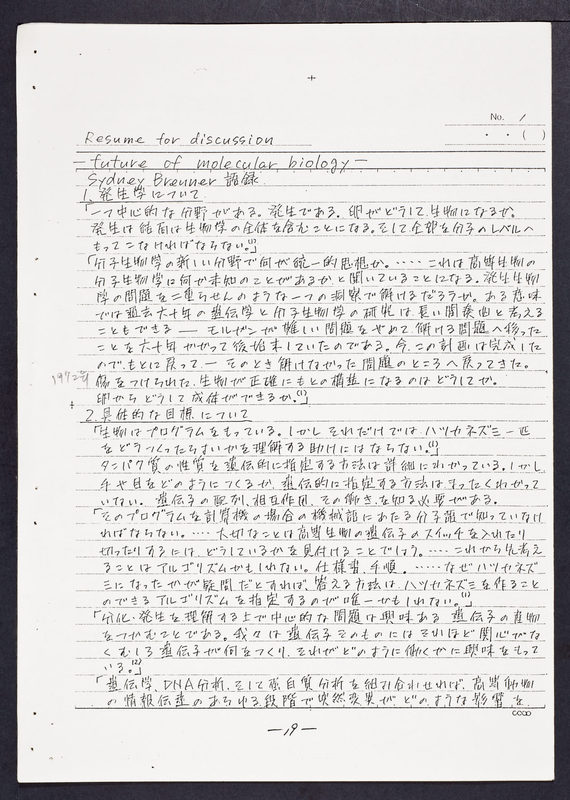 No. 1
・ ・ ( )
Resume for discussion
— future of molecular biology —
Sydney Brenner 語録
1. 発生学について
「一つ中心的な分野がある。発生である。卵がどうして生物になるか。
発生は結局は生物学の全体を含むことになる。そして全部を分子のレベルへ
もってこなければならない。(1)」
「分子生物学の新しい分野で何が統一的思想か。…… これは高等生物の
分子生物学に何か未知のことがあるかと聞いていることになる。発生生物
学の問題を二重らせんのような一つの洞察で解けるだろうか。ある意味
では過去六十年の遺伝学と分子生物学の研究は長い間奏曲と考える
こともできる — モルガンが難しい問題をやめて解ける問題へ移った
ことを六十年かかって後始末していたのである。今、この計画は完成した
ので、もとに戻って — そのとき解けなかった問題のところへ戻ってきた。
1972年
傷をつけられた生物が正確にもとの構造になるのはどうしてか。
卵からどうして成体ができるか。(1)」
2. 具体的な目標について
「生物はプログラムをもっている。しかしそれだけではハツカネズミ一匹
をどうつくったらよいかを理解する助けにはならない。(1)」
タンパク質の性質を遺伝的に指定する方法は詳細にわかっている。しかし
手や目をどのようにつくるか、遺伝的に指定する方法はまったくわかって
いない。遺伝子の配列、相互作用、その働きを知る必要がある。
「そのプログラムを計算機の場合の機械語にあたる分子語で知っていなけ
ればならない。…… 大切なことは高等生物の遺伝子のスイッチを入れたり
切ったりするには、どうしているかを見付けることでしょう。…… これから先考え
ることはアルゴリズムかもしれない。仕様書、手順。…… なぜハツカネズ
ミになったかが疑問だとすれば、答える方法は、ハツカネズミを作ること
のできるアルゴリズムを指定するのが唯一かもしれない。(1)」
「分化・発生を理解する上で中心的な問題は興味ある遺伝子の産物
をつかむことである。我々は遺伝子そのものにはそれほど関心がな
くむしろ遺伝子が何をつくり、それがどのように働くかに興味をもって
いる。(2)」
「遺伝学、DNA分析、そして蛋白質分析を組み合わせれば、高等動物
の情報伝達のあらゆる段階で突然変異がどのような影響を
—19—